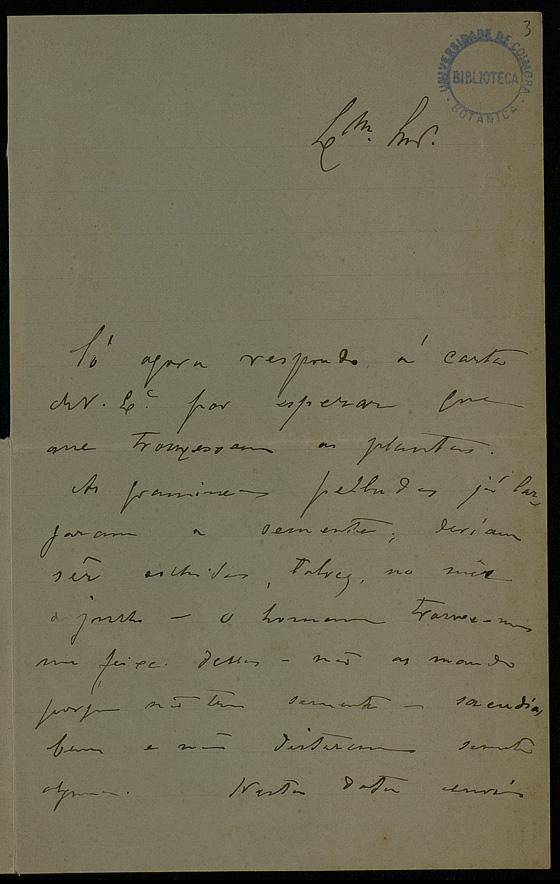 3
UNIVERSIDADE DE COIMBRA
BIBLIOTECA
BOTANICA
Exm. Snr.
Só agora respondo á carta
de V. Exª por esperar que
me trouxessem as plantas.
As gramineas pelludas já lar-
garam a semente, deviam
sêr colhidas, talvez, no mês
de junho — o homem trouxe-me
um feixe dellas — não as mando
porque não teem semente — sacudi-as
bem e não deitaram semente
alguma. Nesta data envio